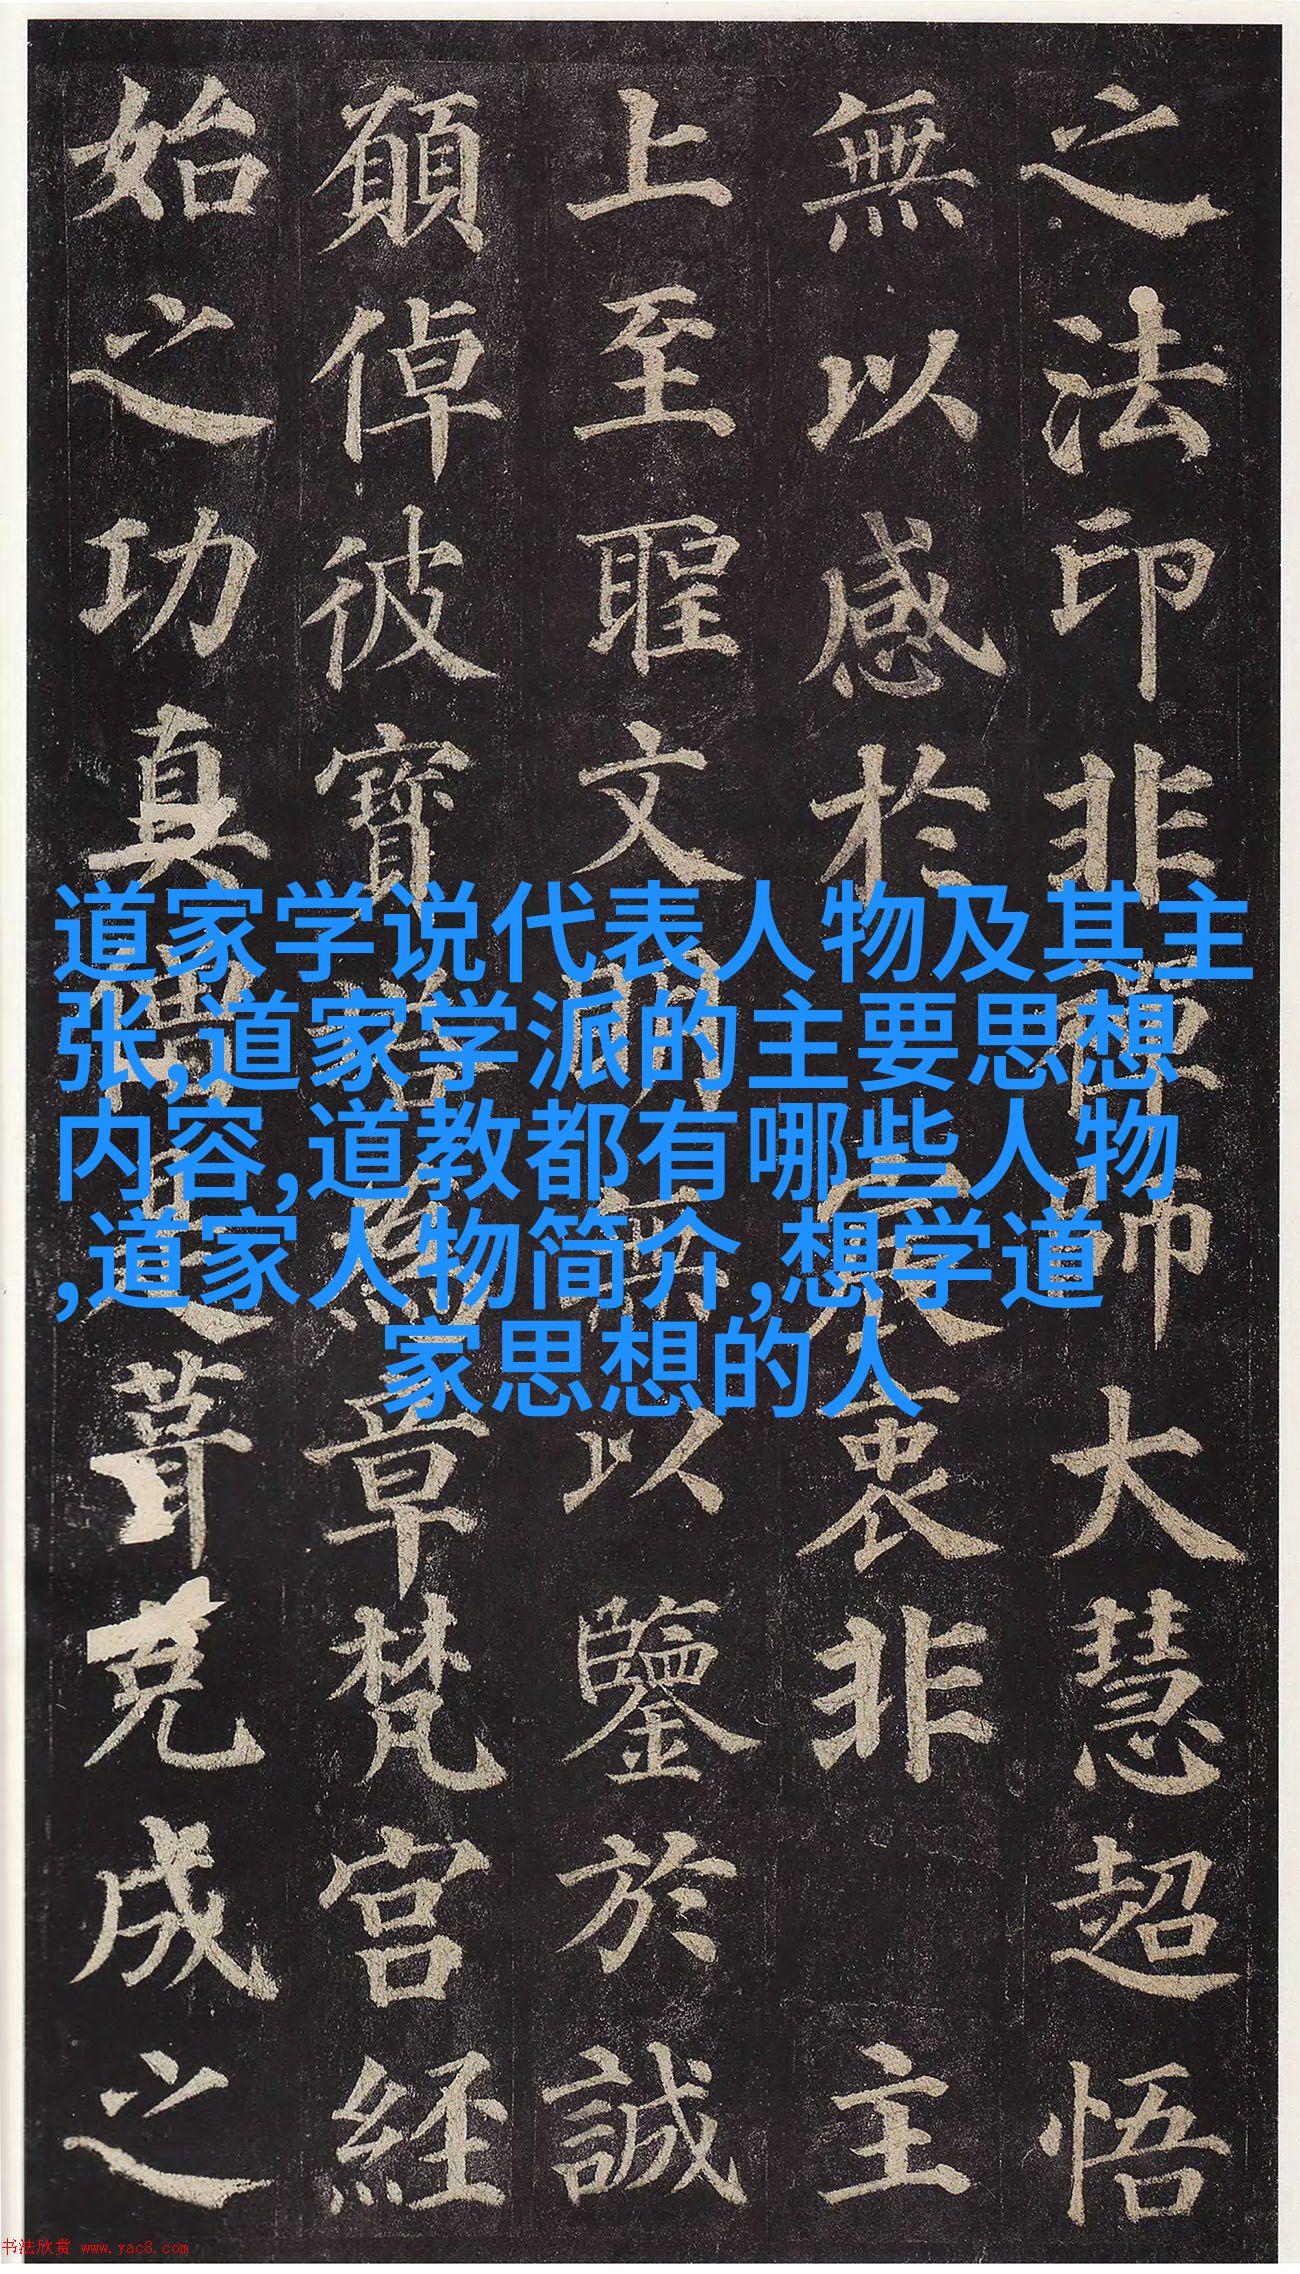 之法印非禪師大慧超悟
無以感於宸衷非主
上至聖文明無以鑒於誠
願倬彼寶塔為章梵宮經
始之功真僧是葺克成之
道家学说代表人物及其主
张,道家学派的主要思想
内容,道教都有哪些人物
,道家人物简介,想学道
家思想的人
书法欣赏 www.yac8.com